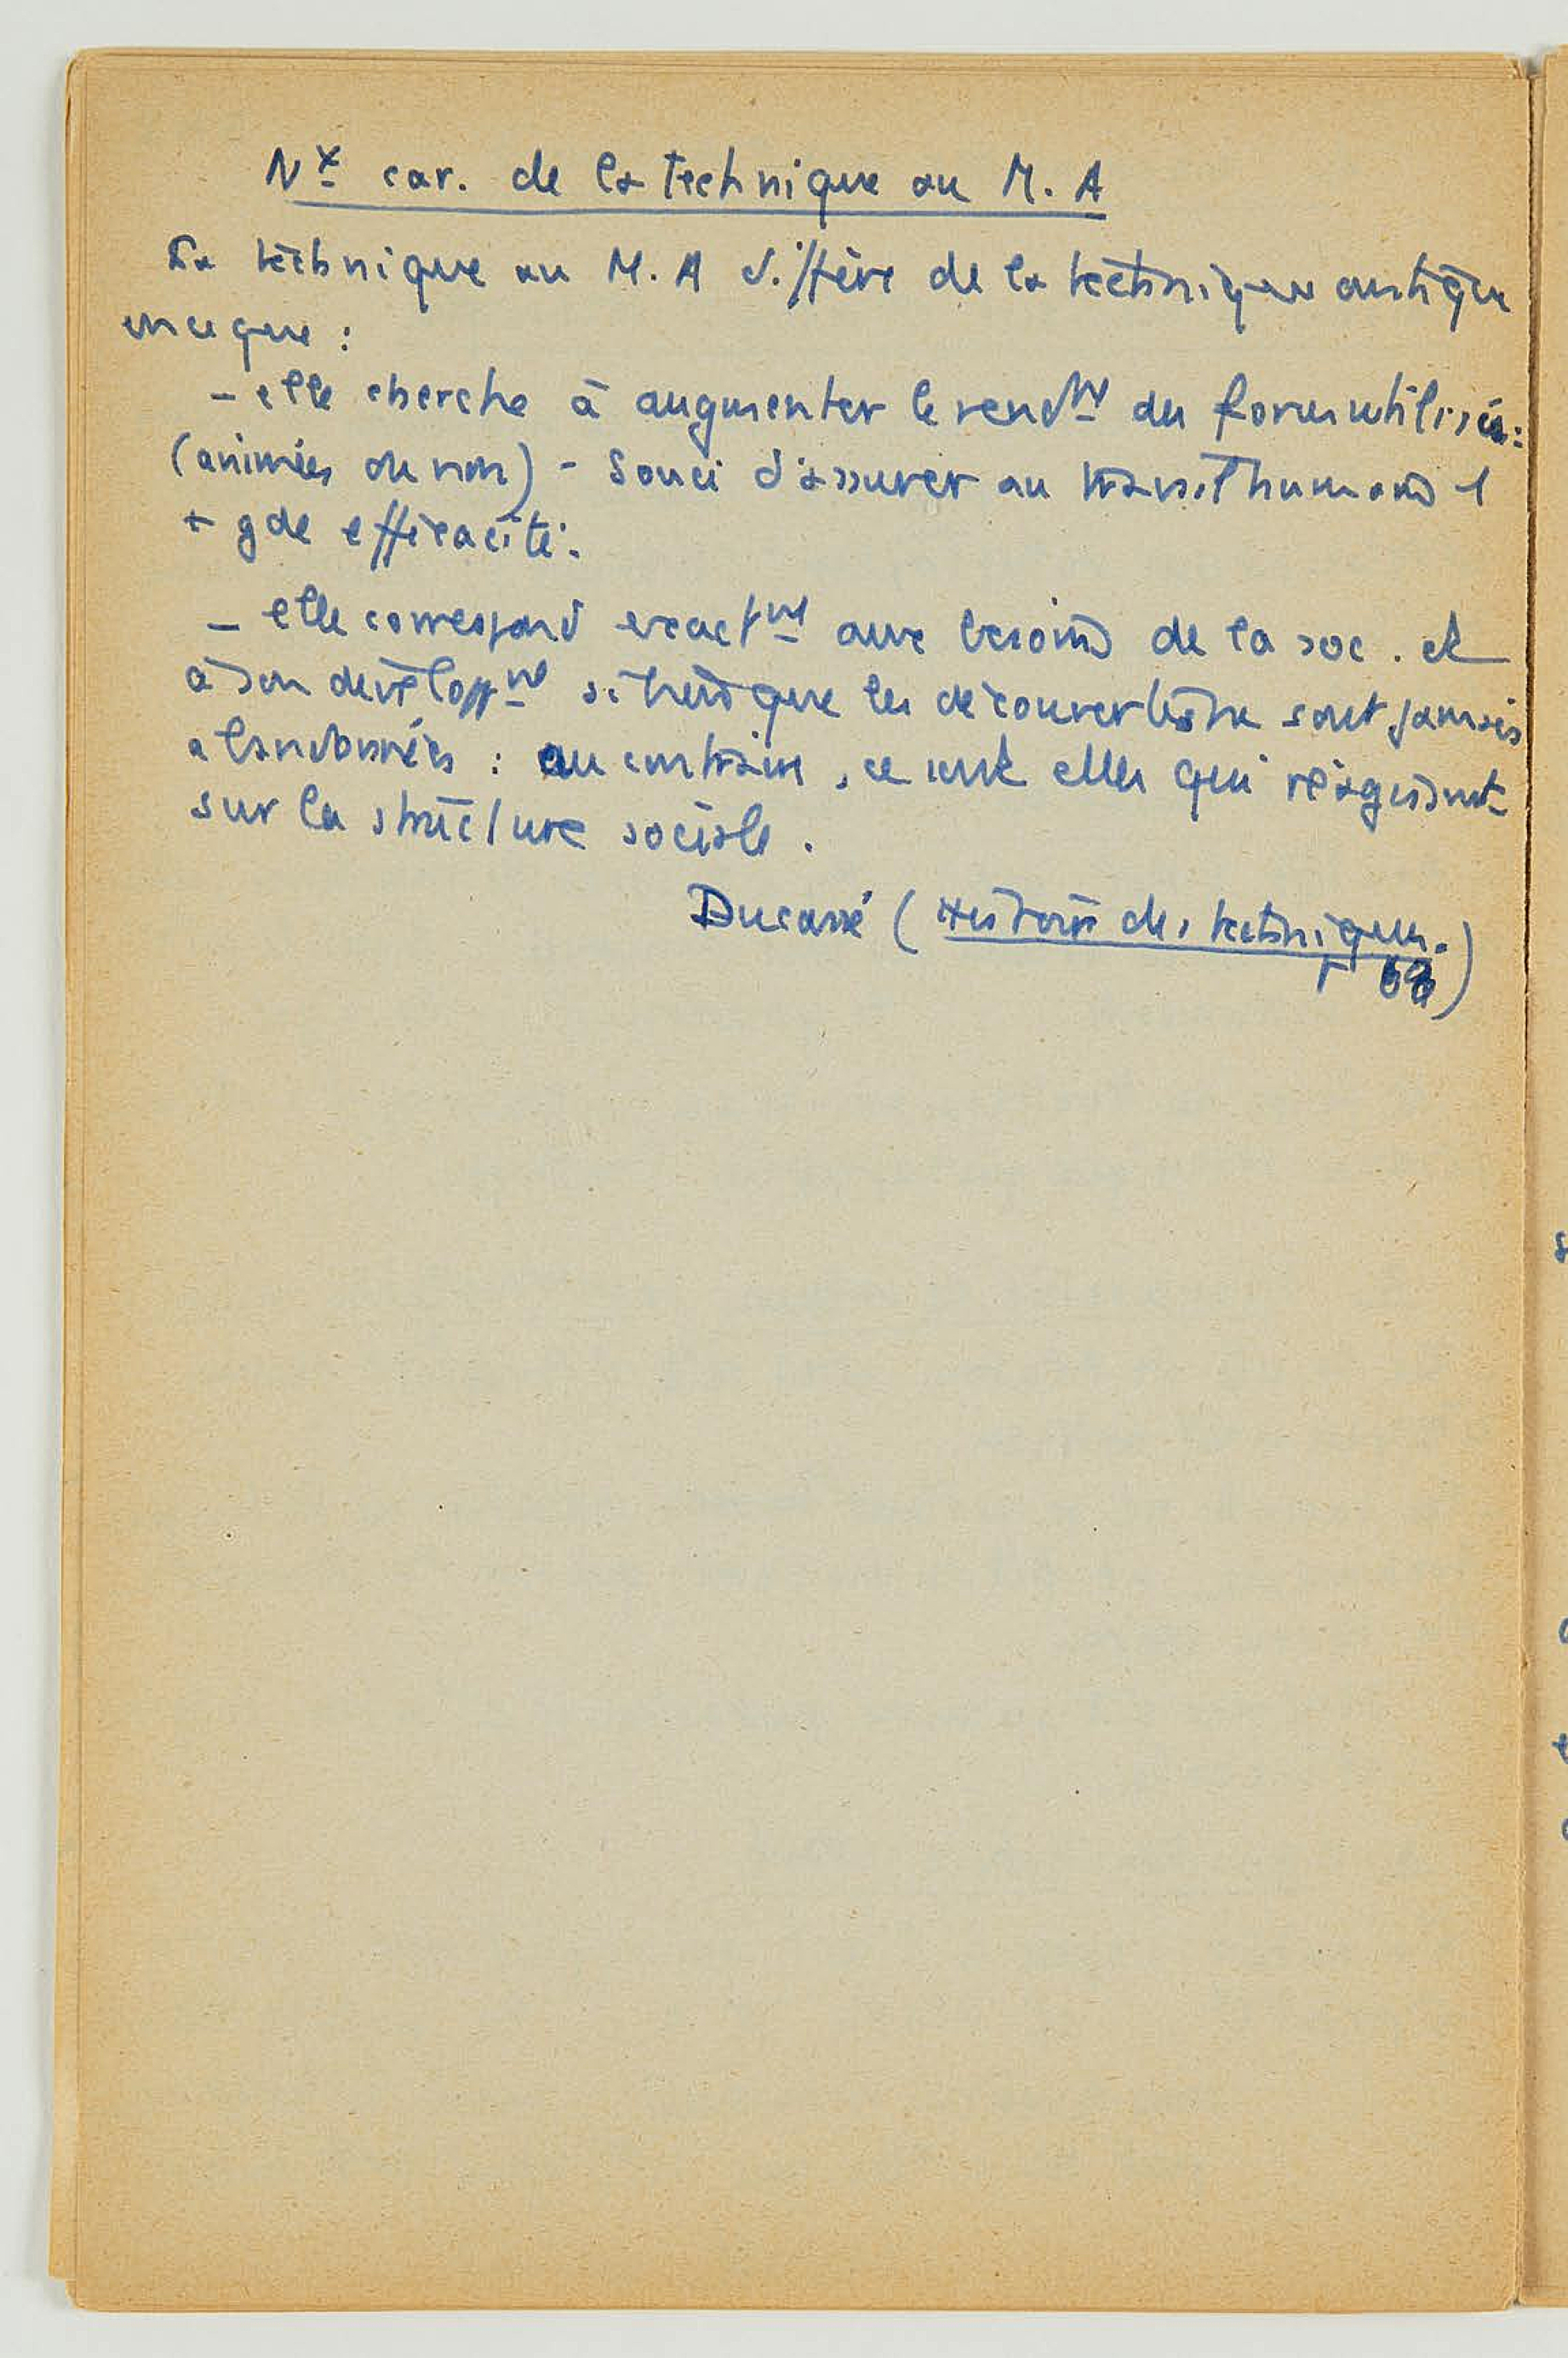 Nx car. de la technique au M. A
La technique au M. A diffère de la technique antique
en ce que :
- elle cherche à augmenter le rendnt des forces utilisées :
(animées ou non) - Souci d'assurer au travail humain 1
+ gde efficacité.
- elle correspond exactnt aux besoins de la soc. et
à son développnt si bien que les découvertes ne sont jamais
abandonnées : au contraire, ce sont elles qui réagissent
sur la structure sociale.
Ducassé (Histoire des techniques.
p